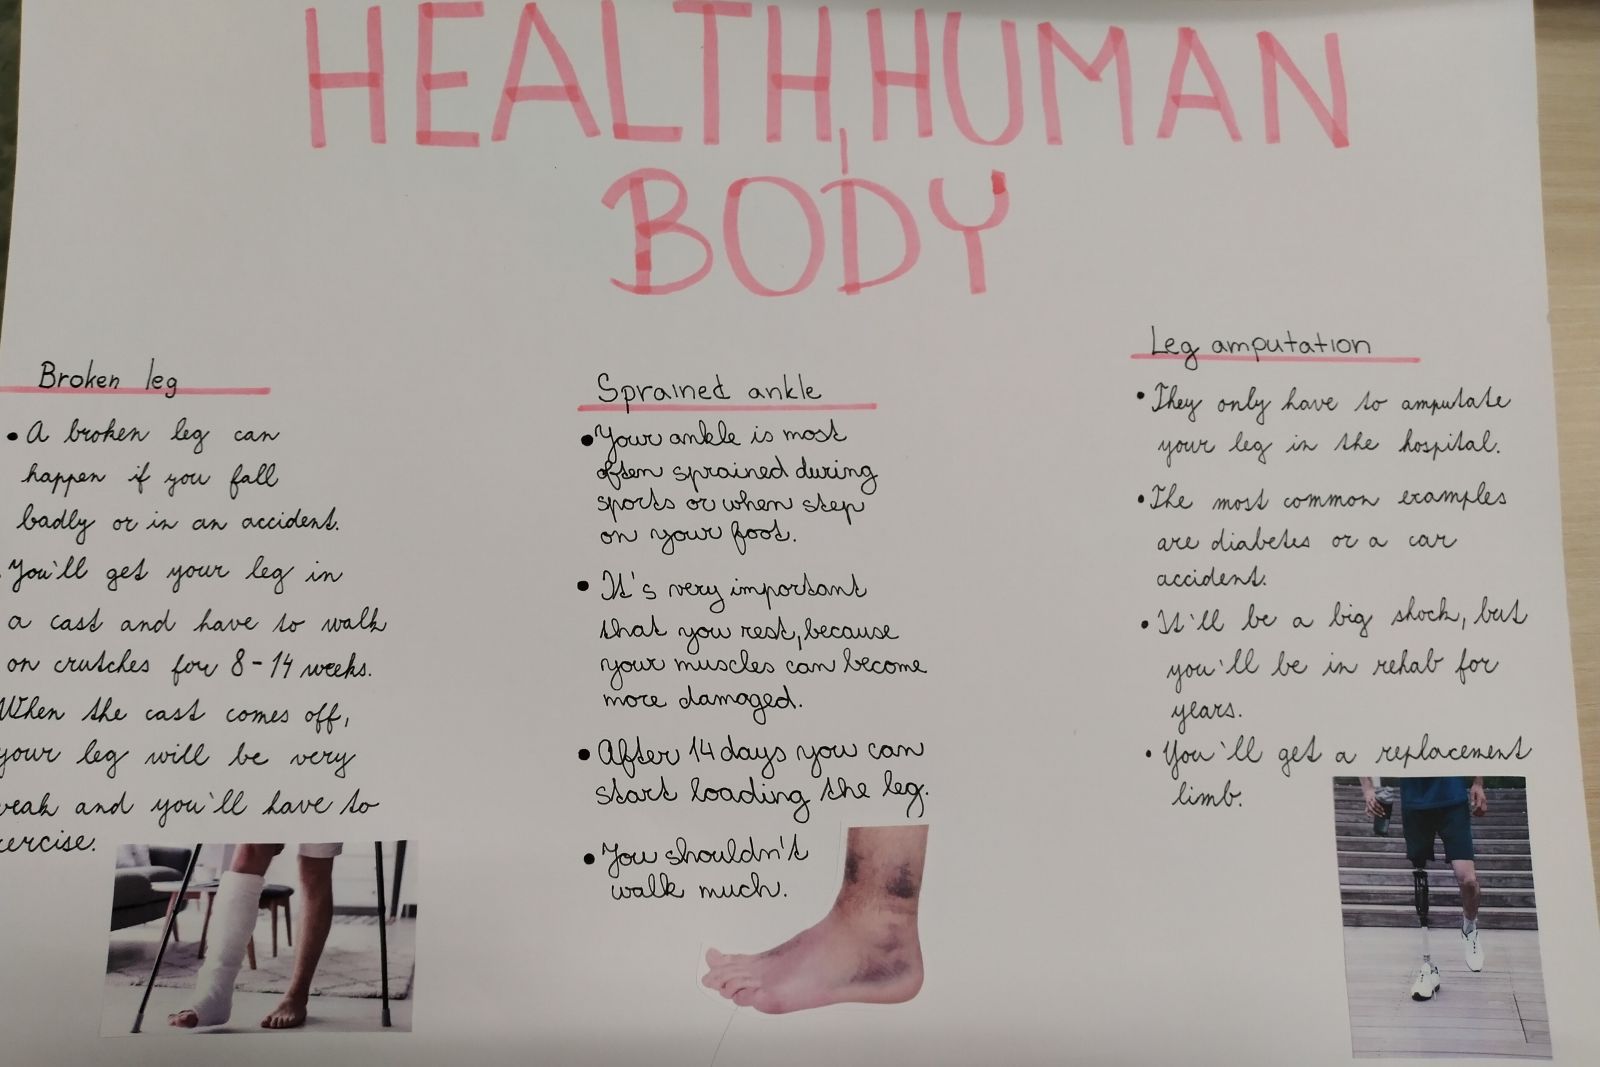 HEALTH, HUMAN
BODY
Broken leg
• A broken leg can
happen if you fall
badly or in an accident.
You'll get your leg in
a cast and have to walk
on crutches for 8-14 weeks.
When the cast comes off,
your leg will be very
weak and you'll have to
exercise.
Sprained ankle
• Your ankle is most
often sprained during
sports or when step
on your foot.
• It's very important
that you rest, because
your muscles can become
more damaged.
• After 14 days you can
start loading the leg.
• You shouldn't
walk much.
Leg amputation
• They only have to amputate
your leg in the hospital.
• The most common examples
are diabetes or a car
accident.
• It'll be a big shock, but
you'll be in rehab for
years.
• You'll get a replacement
limb.